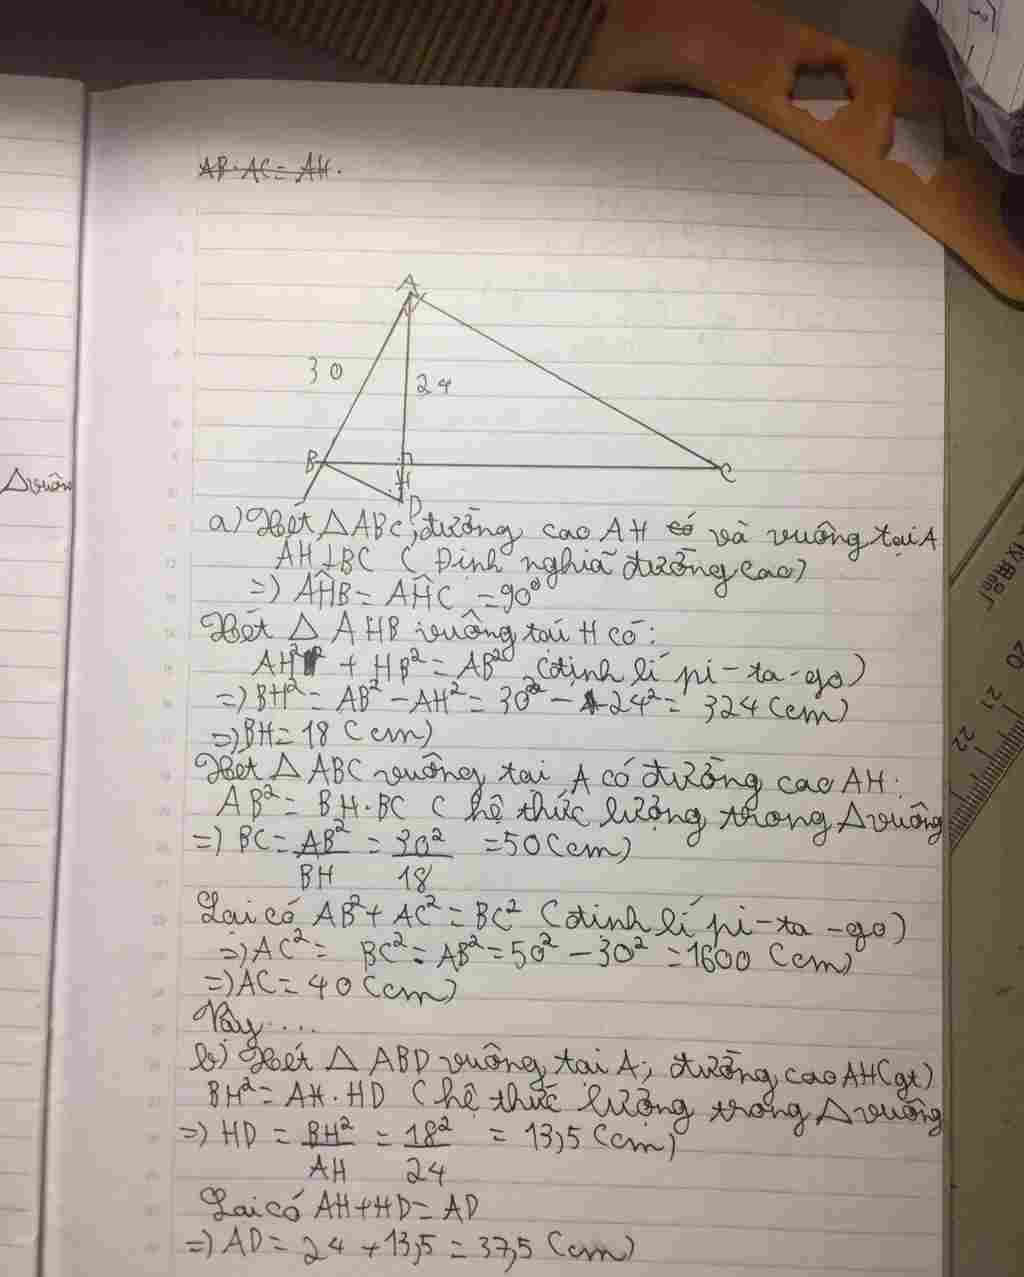 AB·AC=AH.
A
30
24
B
H
C
D
Δvuôn
a) Xét ΔABC, đường cao AH và vuông tại A
AH⊥BC ( Định nghiã đường cao)
=) AĤB = AĤC =90⁰
Xét Δ AHB vuông tại H có:
AH² + HB² = AB² (định lí pi-ta-go)
=) BH² = AB² - AH² = 30² - 24² = 324 (cm)
=) BH = 18 (cm)
Xét Δ ABC vuông tại A có đường cao AH:
AB² = BH.BC ( hệ thức lượng trong Δvuông
=) BC = AB²/BH = 30²/18 =50 (cm)
Lại có AB²+ AC² = BC² (định lí pi-ta-go)
=) AC² = BC² = AB² = 50² - 30² = 1600 (cm)
=) AC = 40 (cm)
Vậy....
b) Xét Δ ABD vuông tại A; đường cao AH(gt)
BH² = AH.HD ( hệ thức lượng trong Δvuông
=) HD = BH²/AH = 18²/24 = 13,5 (cm)
Lại có AH+HD= AD
=) AD = 24 + 13,5 = 37,5 (cm)
20
21
22